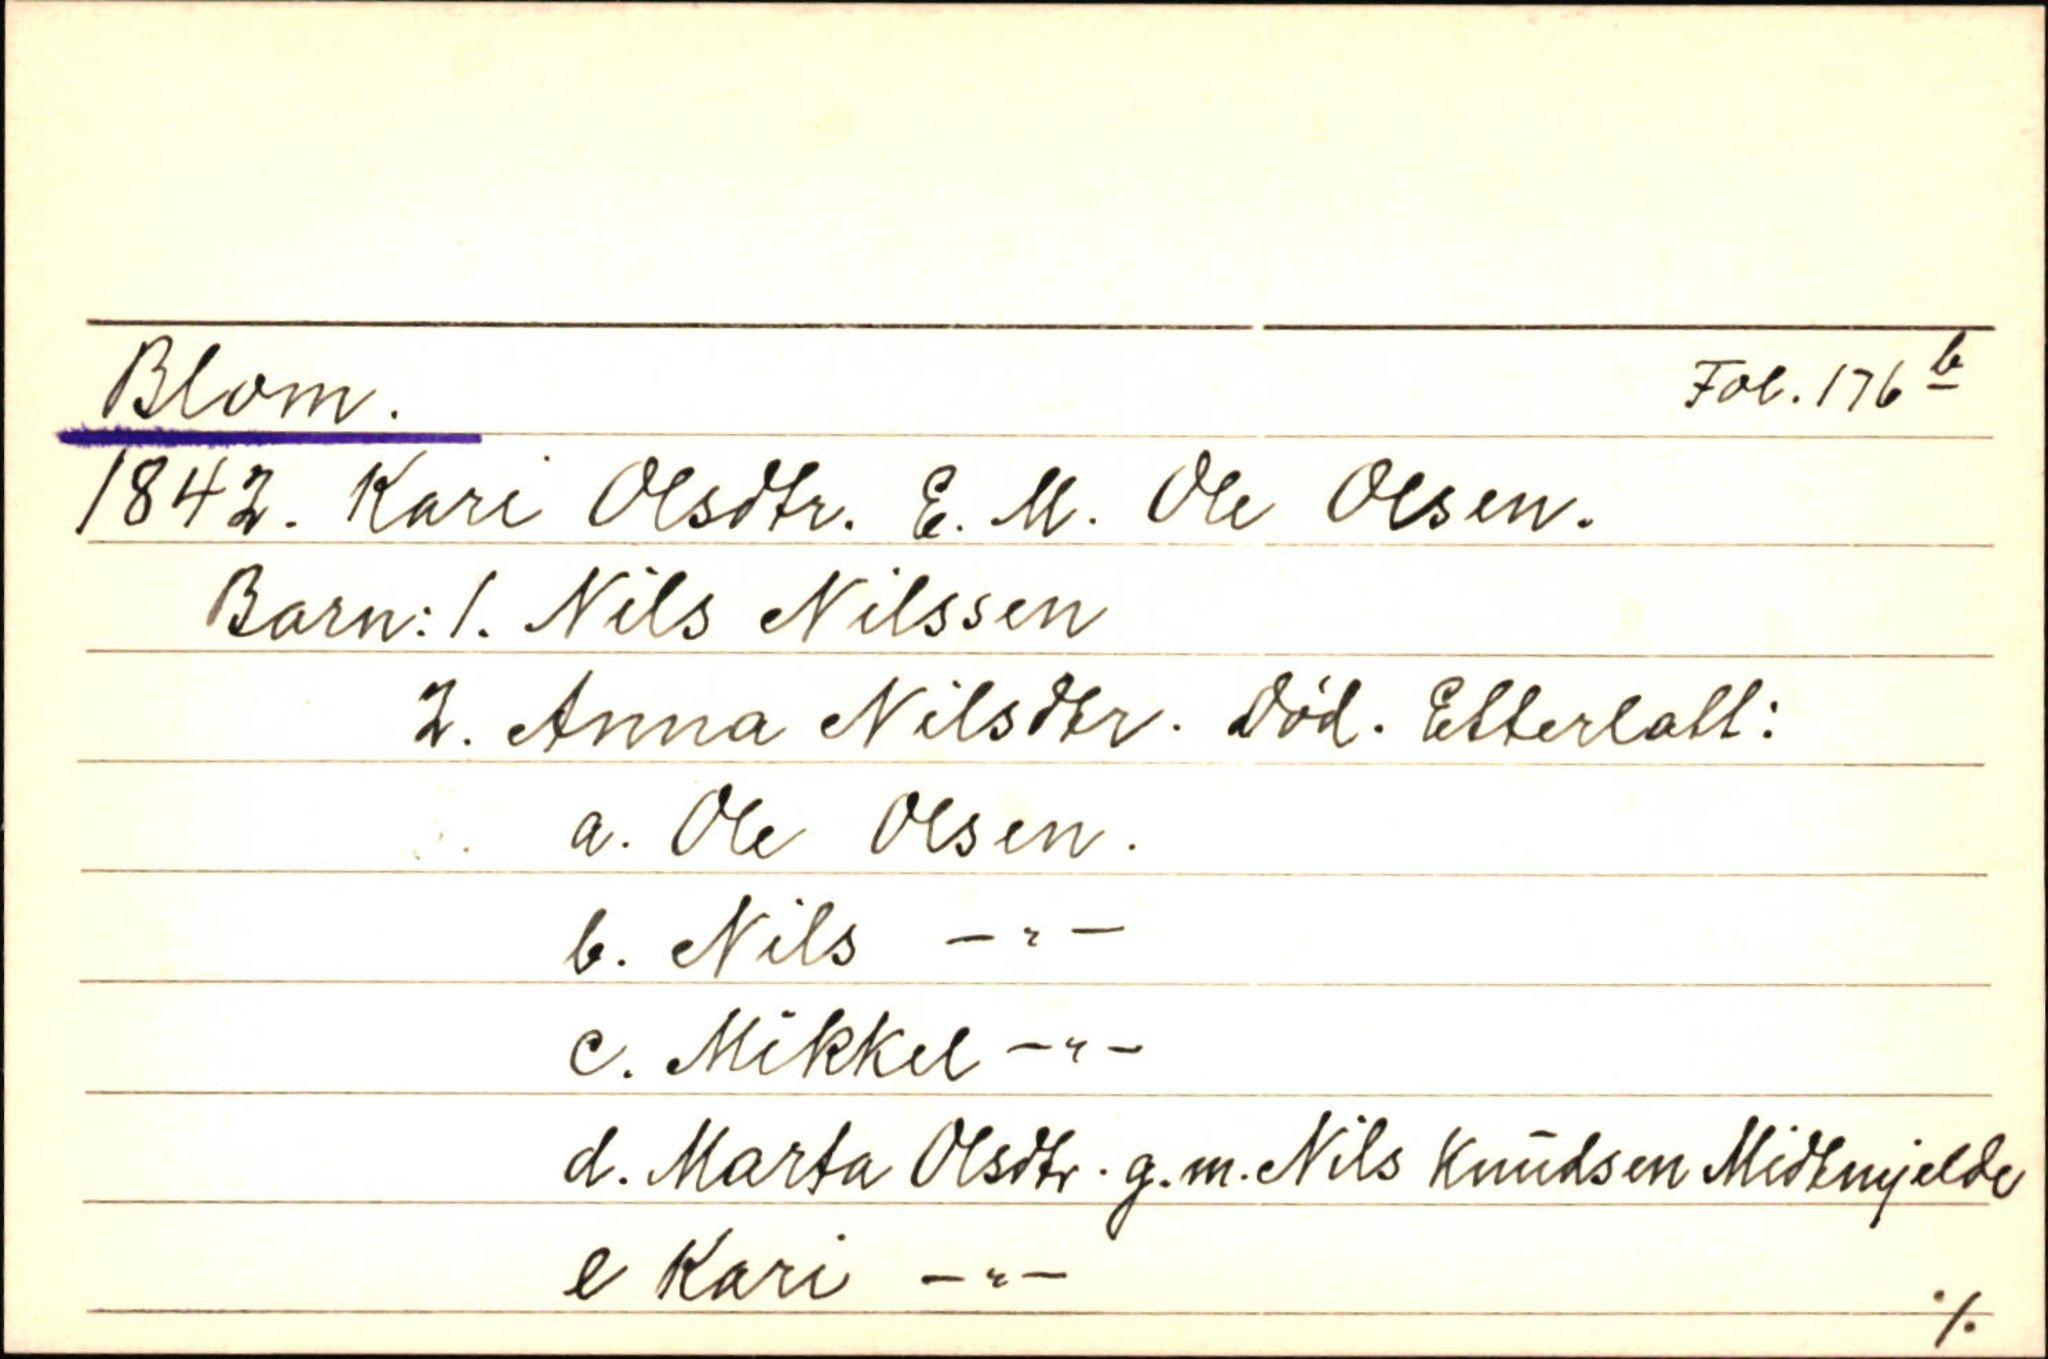 Blom. Fol. 176 b
1842. Kari Olsdtr. E. M. Ole Olsen.
Barn: 1. Nils Nilssen
2. Anna Nilsdtr. Död. Etterlatt:
a. Ole Olsen.
b. Nils —"—
c. Mikkel —"—
d. Marta Olsdtr. g. m. Nils Knudsen Midtmjelde
e Kari —"—
./.